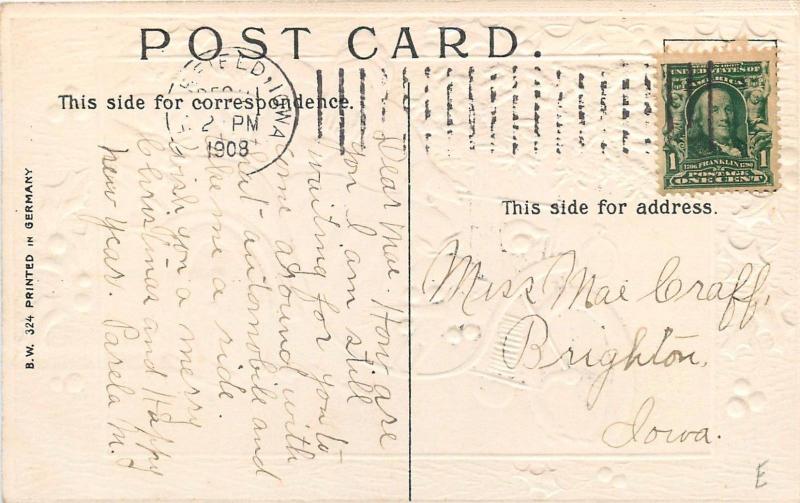 POST CARD.
FIELD, IOWA
2 PM
1908
This side for correspondence.
This side for address.
UNITED STATES OF
AMERICA
1706 FRANKLIN 1790
1 1
POSTAGE
ONE CENT
B.W. 324 PRINTED IN GERMANY
Dear Mae. How are
you I am still
waiting for you to
come around with
that automobile and
take me a ride.
Wish you a merry
Christmas and Happy
New Year. M.
Miss Mae Graff,
Brighton,
Iowa.
E